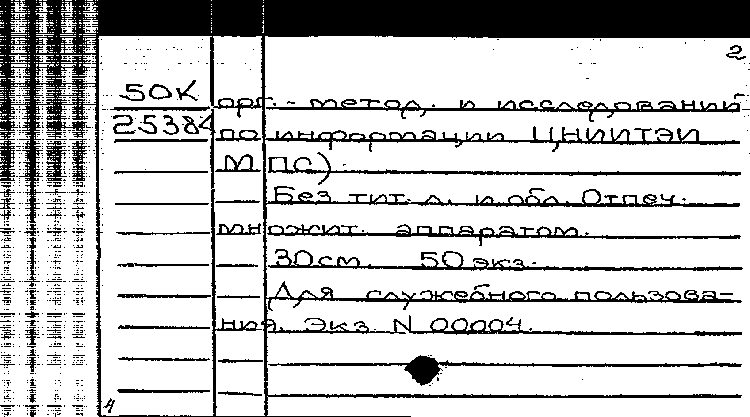 2
50К орг.-метод. и исследований
25384 по информации ЦНИИТЭИ
МПС)
Без тит. л. и обл. Отпеч.
множит. аппаратом.
30см. 50 экз.
Для служебного пользова-
ния. Экз N 00004.
4